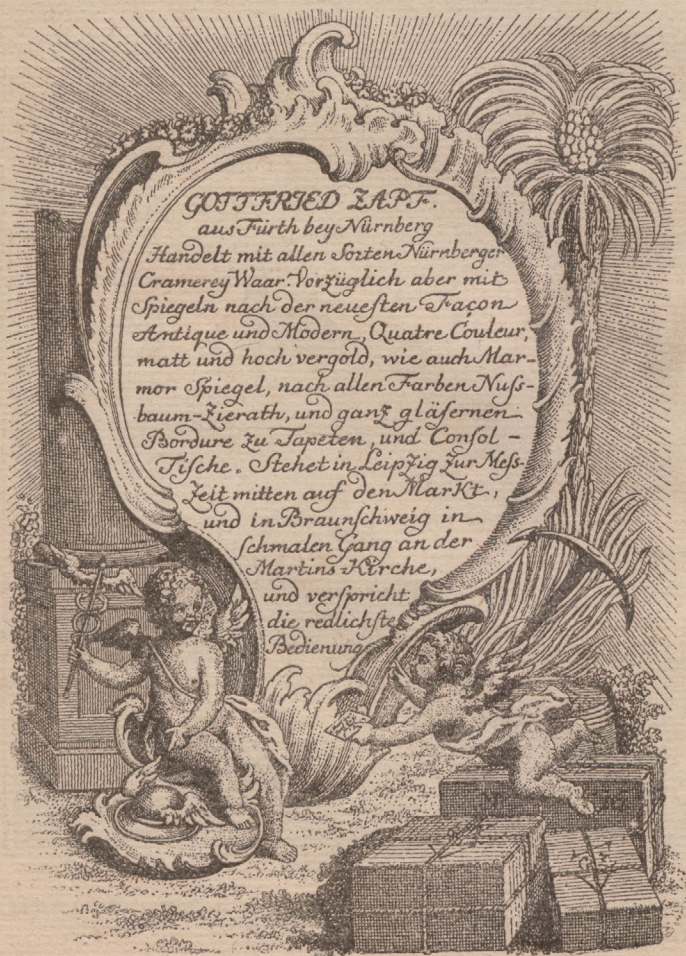 GOTTFRIED ZAPF.
aus Fürth bey Nürnberg
Handelt mit allen Sorten Nürnberger
Cramerey Waar. Vorzüglich aber mit
Spiegeln nach der neuesten Façon
Antique und Modern, Quatre Couleur,
matt und hoch vergold, wie auch Mar-
mor Spiegel, nach allen Farben Nuss-
baum-Zierath, und ganz gläsernen
Bordure zu Tapeten, und Consol-
Tische. Stehet in Leipzig zur Mess-
Zeit mitten auf den Markt,
und in Braunschweig in
schmalen Gang an der
Martins Kirche,
und verspricht
die redlichste
Bedienung